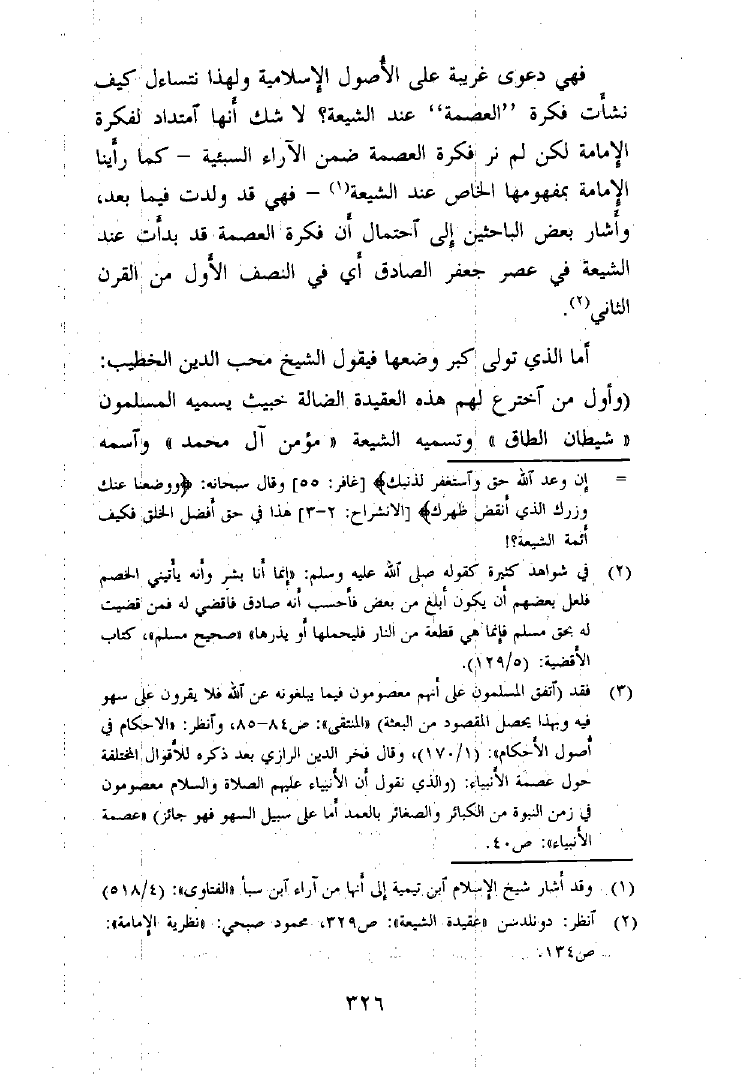 فهي دعوى غريبة على الأصول الإسلامية ولهذا نتساءل كيف
نشأت فكرة ''العصمة'' عند الشيعة؟ لا شك أنها آمتداد لفكرة
الإمامة لكن لم نر فكرة العصمة ضمن الآراء السبئية – كما رأينا
الإمامة بمفهومها الخاص عند الشيعة(١) – فهي قد ولدت فيما بعد،
وأشار بعض الباحثين إلى آحتمال أن فكرة العصمة قد بدأت عند
الشيعة في عصر جعفر الصادق أي في النصف الأول من القرن
الثاني(٢).
أما الذي تولى كبر وضعها فيقول الشيخ محب الدين الخطيب:
(وأول من آخترع لهم هذه العقيدة الضالة خبيث يسميه المسلمون
« شيطان الطاق » وتسميه الشيعة « مؤمن آل محمد » وآسمه
= إن وعد الله حق وآستغفر لذنبك﴾ [غافر: ٥٥] وقال سبحانه: ﴿ووضعنا عنك
وزرك الذي أنقض ظهرك﴾ [الانشراح: ٢–٣] هذا في حق أفضل الخلق فكيف
أئمة الشيعة؟!
(٢) في شواهد كثيرة كقوله صلى الله عليه وسلم: «إنما أنا بشر وأنه يأتيني الخصم
فلعل بعضهم أن يكون أبلغ من بعض فأحسب أنه صادق فاقضي له فمن قضيت
له بحق مسلم فإنما هي قطعة من النار فليحملها أو يذرها» «صحيح مسلم»، كتاب
الأقضية: (١٢٩/٥).
(٣) فقد (آتفق المسلمون على أنهم معصومون فيما يبلغونه عن الله فلا يقرون على سهو
فيه وبهذا يحصل المقصود من البعثة) «المنتقى»: ص٨٤–٨٥، وآنظر: «الاحكام في
أصول الأحكام»: (١٧٠/١)، وقال فخر الدين الرازي بعد ذكره للأقوال المختلفة
حول عصمة الأنبياء: (والذي نقول أن الأنبياء عليهم الصلاة والسلام معصومون
في زمن النبوة من الكبائر والصغائر بالعمد أما على سبيل السهو فهو جائز) «عصمة
الأنبياء»: ص٤٠.
(١) وقد أشار شيخ الإسلام آبن تيمية إلى أنها من آراء آبن سبأ «الفتاوى»: (٥١٨/٤)
(٢) آنظر: دونلدسن «عقيدة الشيعة»: ص٣٢٩، محمود صبحي: «نظرية الإمامة»:
ص١٣٤.
٣٢٦